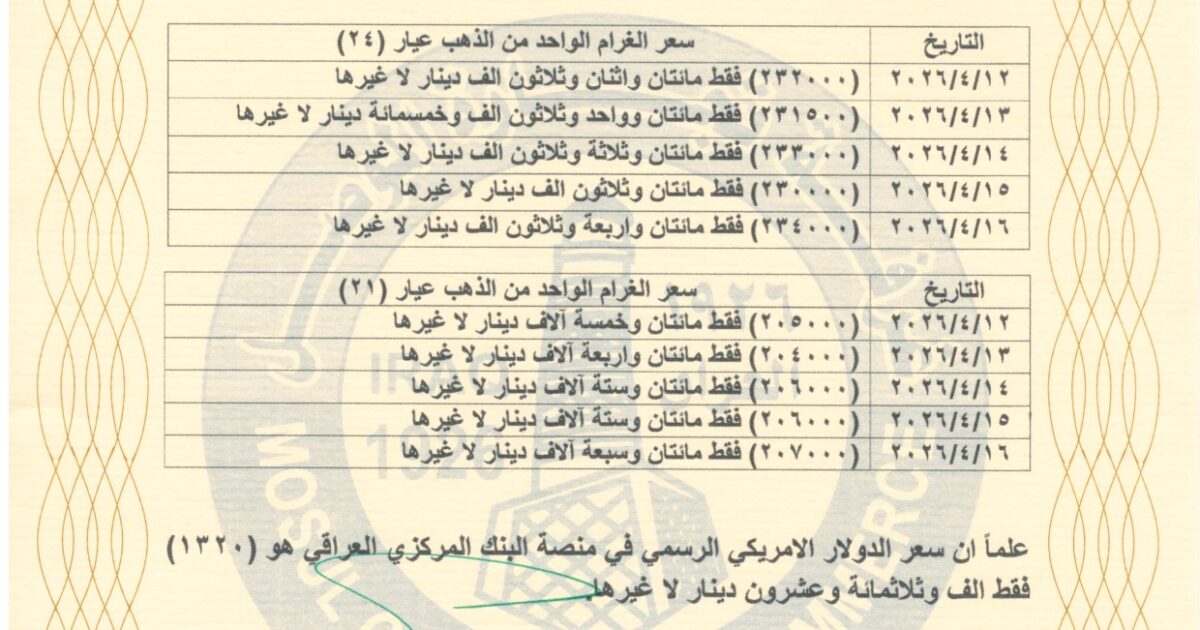 التاريخ سعر الغرام الواحد من الذهب عيار (٢٤)
٢٠٢٦/٤/١٢ (٢٣٢٠٠٠) فقط مائتان واثنان وثلاثون الف دينار لا غيرها
٢٠٢٦/٤/١٣ (٢٣١٥٠٠) فقط مائتان وواحد وثلاثون الف وخمسمائة دينار لا غيرها
٢٠٢٦/٤/١٤ (٢٣٣٠٠٠) فقط مائتان وثلاثة وثلاثون الف دينار لا غيرها
٢٠٢٦/٤/١٥ (٢٣٠٠٠٠) فقط مائتان وثلاثون الف دينار لا غيرها
٢٠٢٦/٤/١٦ (٢٣٤٠٠٠) فقط مائتان واربعة وثلاثون الف دينار لا غيرها
التاريخ سعر الغرام الواحد من الذهب عيار (٢١)
٢٠٢٦/٤/١٢ (٢٠٥٠٠٠) فقط مائتان وخمسة آلاف دينار لا غيرها
٢٠٢٦/٤/١٣ (٢٠٤٠٠٠) فقط مائتان واربعة آلاف دينار لا غيرها
٢٠٢٦/٤/١٤ (٢٠٦٠٠٠) فقط مائتان وستة آلاف دينار لا غيرها
٢٠٢٦/٤/١٥ (٢٠٦٠٠٠) فقط مائتان وستة آلاف دينار لا غيرها
٢٠٢٦/٤/١٦ (٢٠٧٠٠٠) فقط مائتان وسبعة آلاف دينار لا غيرها
علماً ان سعر الدولار الامريكي الرسمي في منصة البنك المركزي العراقي هو (١٣٢٠)
فقط الف وثلاثمائة وعشرون دينار لا غيرها.
IRAQ
1926
١٩٢٦
MOSUL
MMERCE